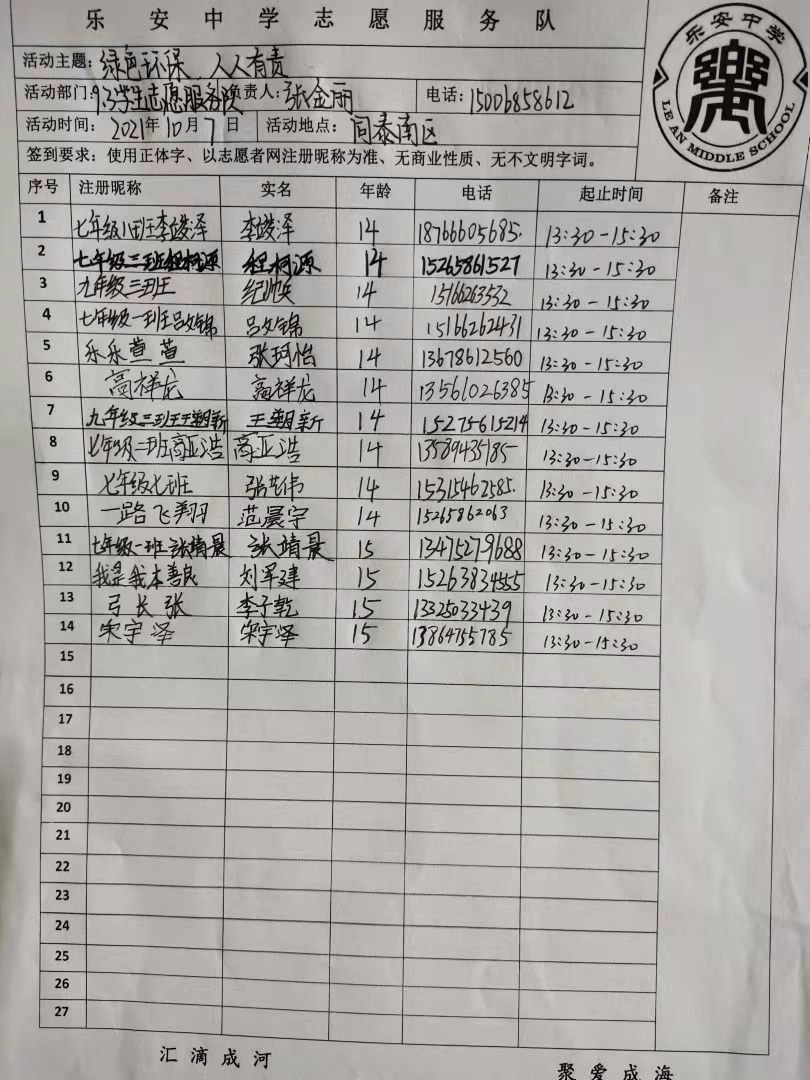 乐安中学志愿服务队
活动主题：绿色环保、人人有责
活动部门：9.3学生志愿服务队 负责人：张金丽 电话：15006858612
活动时间：2021年10月7日 活动地点：同泰南区
签到要求：使用正体字、以志愿者网注册昵称为准、无商业性质、无不文明字词。
乐安中学
LE AN MIDDLE SCHOOL
序号 注册昵称 实名 年龄 电话 起止时间 备注
1 七年级八班李竣泽 李竣泽 14 18766605685. 13:30-15:30
2 七年级三班程柯源 程柯源 14 15265861527 13:30-15:30
3 九年级三班 纪帅兵 14 15166263532 13:30-15:30
4 七年级一班吕文锦 吕文锦 14 15166262431 13:30-15:30
5 乐乐萱萱 张珂怡 14 13678612560 13:30-15:30
6 高祥龙 高祥龙 14 13561026385 13:30-15:30
7 九年级三班王翊新 王翊新 14 15275615214 13:30-15:30
8 七年级二班高亚浩 高亚浩 14 13589435185 13:30-15:30
9 七年级七班 张艺伟 14 15315462585. 13:30-15:30
10 一路飞翔 范晨宇 14 15265862063 13:30-15:30
11 七年级一班张靖晨 张靖晨 15 13475279688 13:30-15:30
12 我是我本善良 刘军建 15 15263834555 13:30-15:30
13 弓长张 李子乾 15 13325033439 13:30-15:30
14 宋宇泽 宋宇泽 15 13864755785 13:30-15:30
15
16
17
18
19
20
21
22
23
24
25
26
27
汇滴成河
聚爱成海